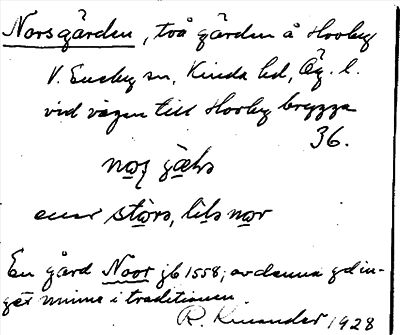 Norsgården, två gården å Hovby
V. Eneby sn, Kinda hd, Ög. l.
vid vägen till Hovby brygga
36.
stårs, lils nor
En gård Noor jb 1558; av denna gd in-
get minne i traditionen.
R. Kinander 1928